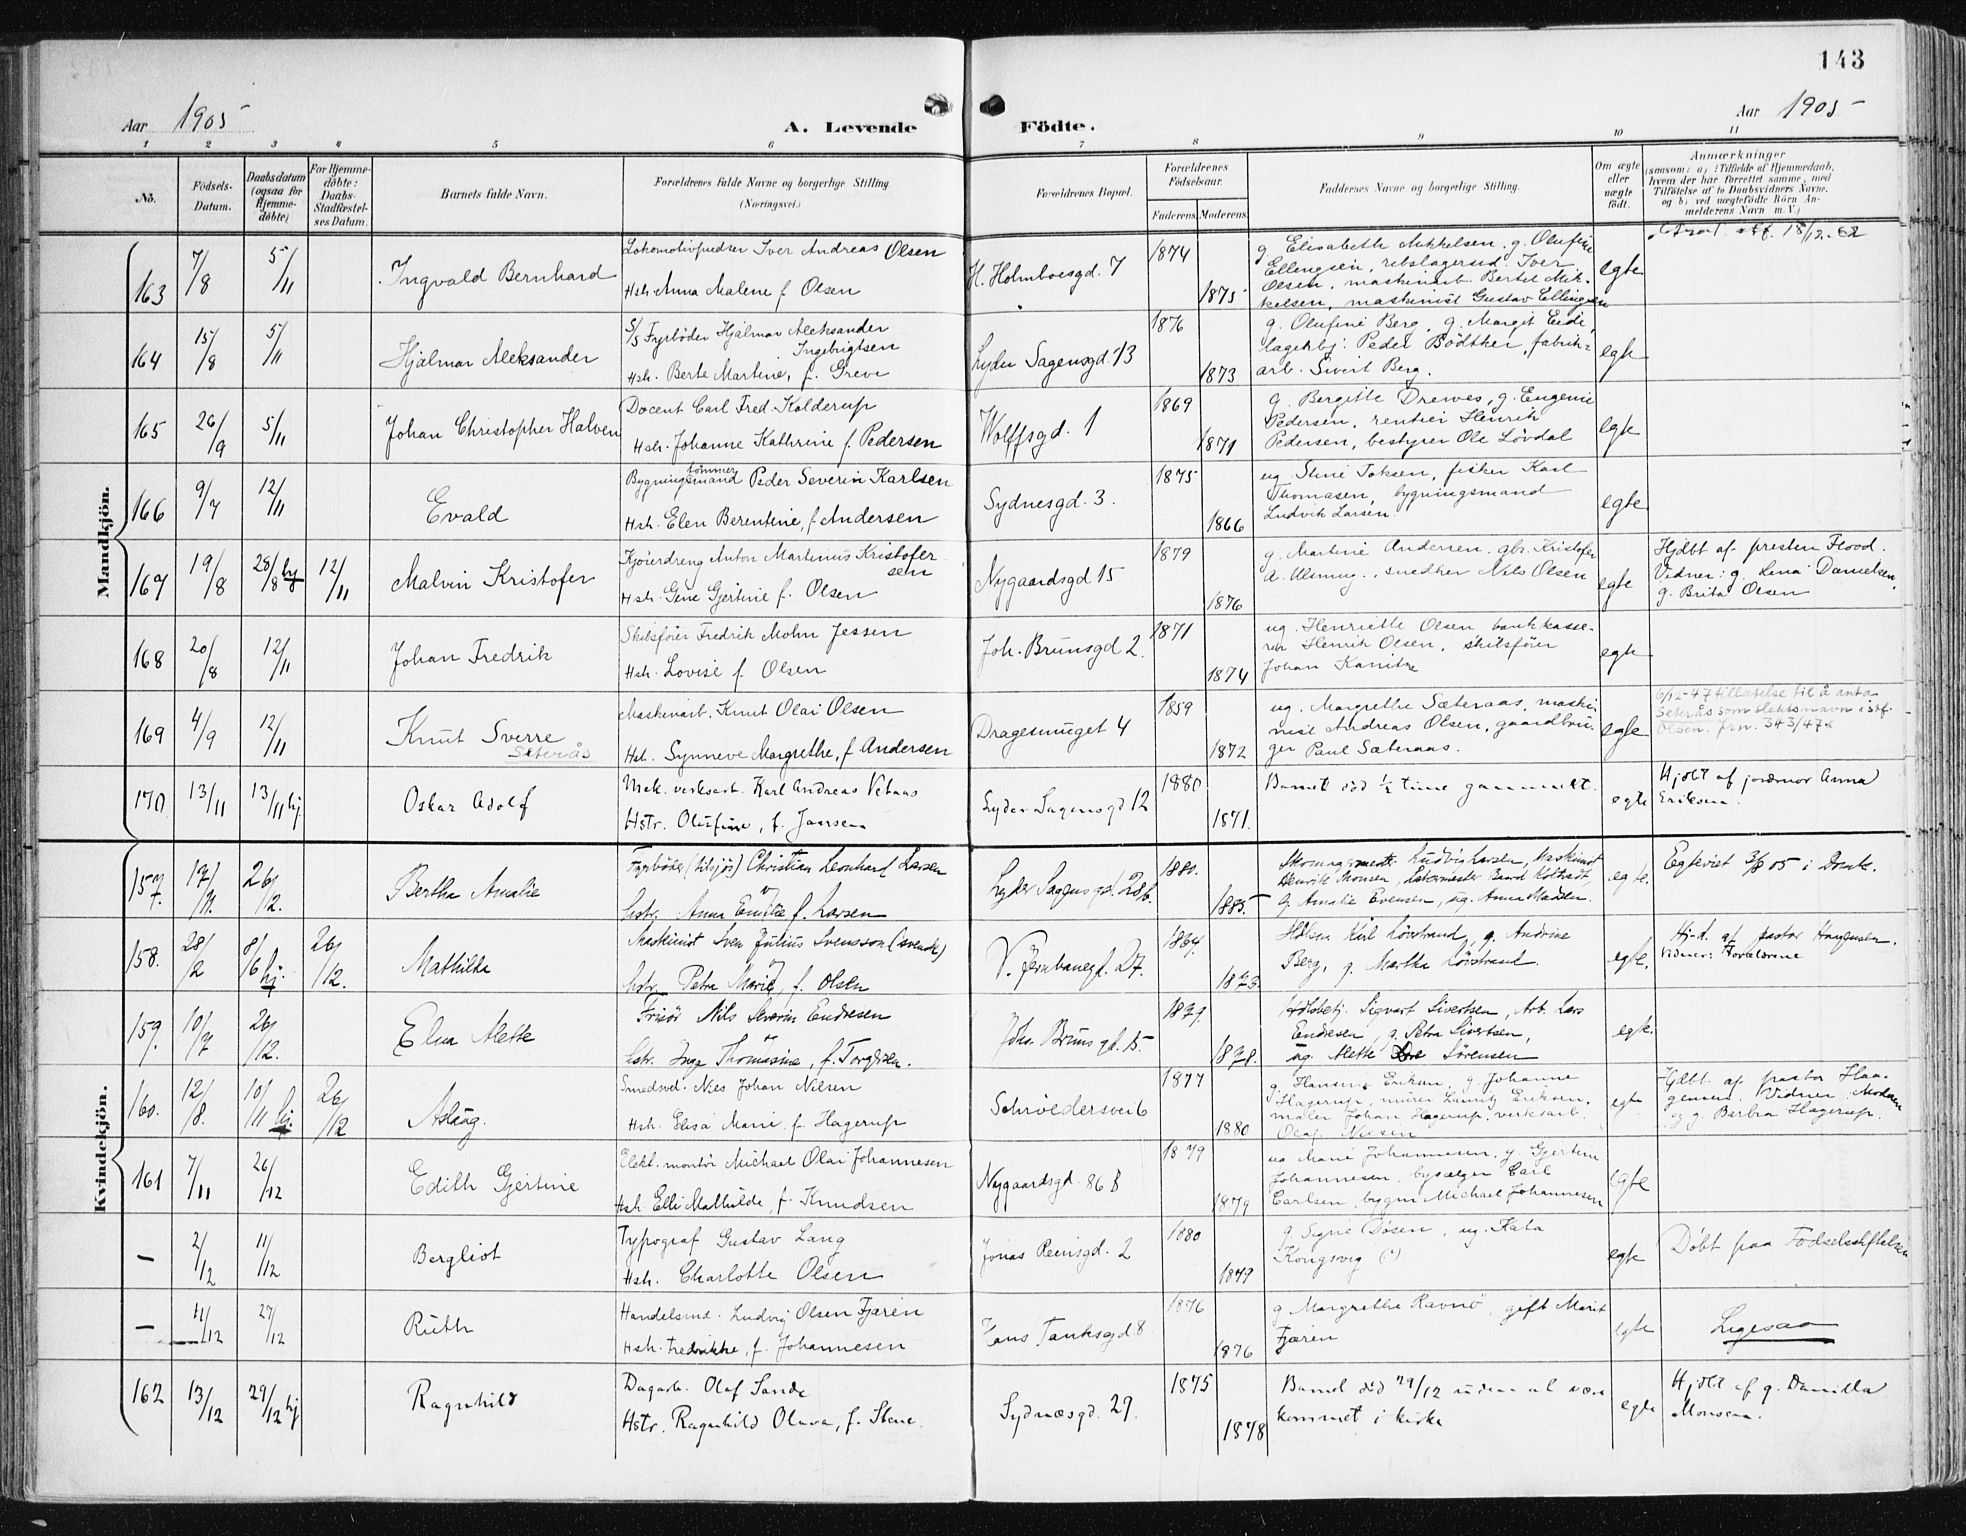 143
Aar 1905
A. Levende
Födte.
Aar 1905
1 2 3 4 5 6 7 8 9 10 11
No.
Födsels-
Datum.
Daabsdatum
(ogsaa for
Hjemme-
döbte)
For Hjemme-
döbte:
Daabs-
Stadfæstel-
ses Datum.
Barnets fulde Navn.
Forældrenes fulde Navne og borgerlige Stilling.
(Næringsvei.)
Forældrenes Bopæl.
Forældrenes
Födselsaar.
Faderens. Moderens.
Faddernes Navne og borgerlige Stilling.
Om ægte
eller
uægte
födt.
Anmærkninger
(saasom: a) i Tilfælde af Hjemmedaab,
hvem der har forrettet samme, med
Tilföielse af to Daabsvidners Navne,
og b) ved uægtefödte Börn An-
melderens Navn m. V.)
Mandkjön.
163 7/8 5/11 Ingvald Bernhard
Iver Andreas Olsen
Hstr. Anna Malene f. Olsen
H. Holmboesgd. 7
1874
1875
g. Elisabeth Mikkelsen, g. Olufine
Ellengsen, rebslagersvd. Iver
Olsen, maskinarb. Bertel Mik-
kelsen, maskinist Gustav Ellingsen
egte
Attest utf. 18/12-62
164 15/8 5/11 Hjalmar Aleksander
S/S Fyrbøder Hjalmar Aleksander
Ingebrigtsen
Hstr. Berte Martine, f. Greve
Lyder Sagensgd. 13
1876
1873
g. Olufine Berg, g. Margit Eide,
Peder Bödtker, fabrik-
arb. Sivert Berg.
egte
165 26/9 5/11 Johan Christopher Halven
Docent Carl Fred. Kolderup
Hstr. Johanne Kathrine f. Pedersen
Wolffsgd. 1
1869
1871
g. Bergitte Drewes, g. Eugenie
Pedersen, rentier Henrik
Pedersen, bestyrer Ole Lövdal
egte
166 9/7 12/11 Evald
tömmer
Bygningsmand Peder Severin Karlsen
Hstr. Elen Berentine, f. Andersen
Sydnesgd. 3.
1875
1866
ug. Stine Jaksen, fisker Karl
Thomasen, bygningsmand
Ludvik Larsen.
egte
167 19/8 28/8 hj 12/11 Malvin Kristofer
Kjøierdreng Anton Martinius Kristofer-
sen
Hstr. Gine Gjertine f. Olsen
Nygaardsgd 15
1879
1876
g. Martine Andersen, gbr. Kristofer
A. Ulsmug., snedker Nils Olsen
egte
Hjdbt af presten Flood.
Vidner: g. Lena Danielsen,
g. Brita Olsen
168 20/8 12/11 Johan Fredrik
Skibsfører Fredrik Mohn Jessen
Hstr. Lovise f. Olsen
Joh. Brunsgd 2.
1871
1874
ug. Henriette Olsen bankkasse-
rer Henrik Olsen, skibsfører
Johan Kanitze
egte
169 4/9 12/11 Knut Sverre
Seterås
Maskinarb. Knut Olai Olsen
Hst. Synneve Margrethe, f. Andersen
Dragesmuget 4
1859
1872
ug. Margrethe Sæteraas, maski-
nist Andreas Olsen, gaardbru-
ger Paul Sæteraas.
egte
6/12-47 tillatelse til å anta
Seterås som slektsnavn i stf.
Olsen. Jrn. 343/47
170 13/11 13/11 hj. Oskar Adolf
Mek. verksarb. Karl Andreas Vetaas
Hstr. Olufine, f. Jansen
Lyder Sagensgd 12
1880
1871.
Barnet död 1/2 time gammelt.
egte
Hjdbt af jordmor Anna
Eriksen.
Kvindekjön.
157. 17/11. 26/12. Bertha Amalie
Fyrböder (tilsjös) Christian Leonhard Larsen
hstr. Anna Emilie f. Larsen
Lyder Sagens gd. 28 b.
1881.
1885.
Skomagermester Ludvig Larsen, Maskinist
Henrik Monsen,
g. Amalie Evensen, ug. Anna Madsen.
egte.
Egteviet 3/9 05 i Domk.
158. 28/2 8/6 hj. 26/12. Mathilde
Maskinist Sven Julius Svensson (svensk)
hstr. Petra Marie, f. Olsen
V. Jernbanegd. 27.
1864.
1873.
Karl Lövstrand, g. Andrine
Berg, g. Martha Lövstrand.
egte.
Hj-d. af pastor Haagensen.
Vidner: Forældrene
159. 10/7 26/12. Elna Mette
Frisör Nils Severin Endresen
hstr. Inga Thomasine, f. Torgersen.
Joh. Bruns gd. 15.
1879.
1878.
Sigvart Sivertsen, Arb. Lars
Endresen, g. Petra Sivertsen,
ug. Mette Sörensen
egte.
160. 12/8. 10/11 hj. 26/12 Aslaug.
Smedsvd. Nils Johan Nilsen
Hstr. Elisa Marie f. Hagerup
Schröedersvei 6
1877
1880
g. Hansine Eriksen, g. Johanne
Hagerup, murer Lauritz Eriksen,
maler Johan Hagerup, verksarb.
Olaf Nilsen
egte
Hjdbt af pastor Haa-
gensen. Vidner: Moderen
og g. Bertha Hagerup.
161 7/11 26/12 Edith Gjertine
Elekt. montör Michael Olai Johannesen
Hstr. Elli Mathilde, f. Knudsen
Nygaardsgd. 86 B
1879
1879
ug Marie Johannesen, g. Gjertine
Johannesen, bysælger Carl
Carlsen, bygm Michael Johannesen
egte
— 2/12 11/12 Bergliot
Typograf Gustav Lang
Hstr. Charlotte Olsen
Jonas Reinsgd. 2
1880
1879
g. Signe Dösen, ug. Kata
Kongsvig (?)
egte
Döbt paa Födselsstiftelsen
— 11/12 27/12 Ruth
Handelsmd. Ludvig Olsen Fjæren
Hstr. Fredrikke, f. Johannesen
Hans Tanksgd 8
1876
1876
g. Margrethe Ravnö, gift Marit
Fjæren
egte
Ligesaa
162 13/12 29/12 hj Ragnhild
Dagarb. Olaf Sande
Hstr. Ragnhild Olava, f. Stene.
Sydnæsgd. 29.
1875
1878
Barnet död 29/12 uden at være
kommet i kirke
egte
Hjdbt af g. Danilla
Monsen.